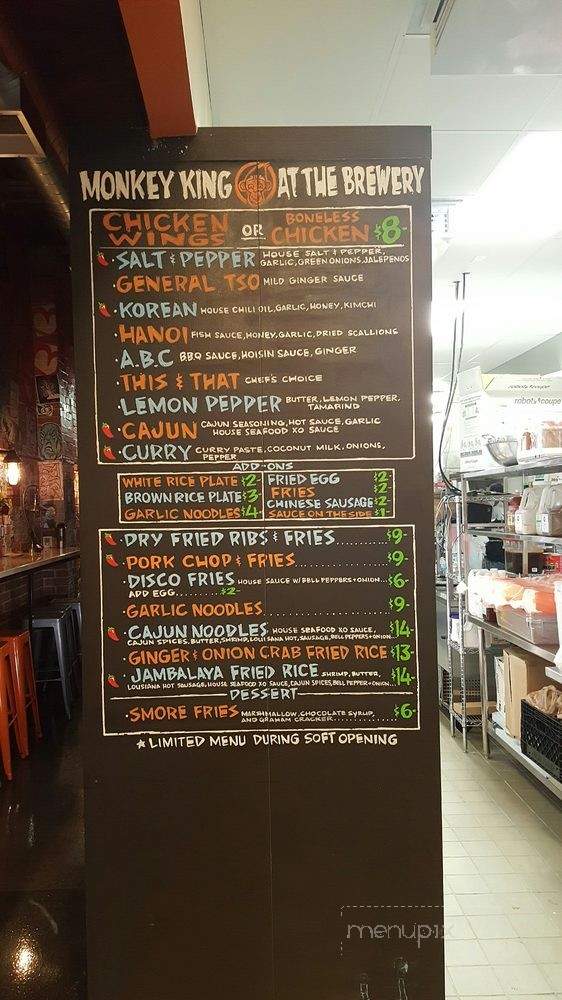 MONKEY KING AT THE BREWERY
CHICKEN WINGS OR BONELESS CHICKEN $8-
SALT & PEPPER HOUSE SALT & PEPPER,
GARLIC, GREEN ONIONS, JALEPENOS
GENERAL TSO MILD GINGER SAUCE
KOREAN HOUSE CHILI OIL, GARLIC, HONEY, KIMCHI
HANOI FISH SAUCE, HONEY, GARLIC, DRIED SCALLIONS
A.B.C BBQ SAUCE, HOISIN SAUCE, GINGER
THIS & THAT CHEF'S CHOICE
LEMON PEPPER BUTTER, LEMON PEPPER,
TAMARIND
CAJUN CAJUN SEASONING, HOT SAUCE, GARLIC
HOUSE SEAFOOD XO SAUCE
CURRY CURRY PASTE, COCONUT MILK, ONIONS,
PEPPER
ADD-ONS
WHITE RICE PLATE $2-
BROWN RICE PLATE $3-
GARLIC NOODLES $4-
FRIED EGG $2-
FRIES $2-
CHINESE SAUSAGE $2-
SAUCE ON THE SIDE $1-
DRY FRIED RIBS & FRIES $9-
PORK CHOP & FRIES $9-
DISCO FRIES HOUSE SAUCE W/ BELL PEPPERS + ONION... $6-
ADD EGG........ $2-
GARLIC NOODLES $9-
CAJUN NOODLES HOUSE SEAFOOD XO SAUCE, $14
CAJUN SPICES, BUTTER, SHRIMP, LOUISIANA HOT SAUSAGE, BELL PEPPERS + ONION...
GINGER & ONION CRAB FRIED RICE $13
JAMBALAYA FRIED RICE SHRIMP, BUTTER, $14
LOUSIANA HOT SAUSAGE, HOUSE SEAFOOD XO SAUCE, CAJUN SPICES, BELL PEPPER + ONION...
DESSERT
SMORE FRIES MARSHMALLOW, CHOCOLATE SYRUP,
AND GRAHAM CRACKER........ $6-
* LIMITED MENU DURING SOFT OPENING
robot coupe
menupix